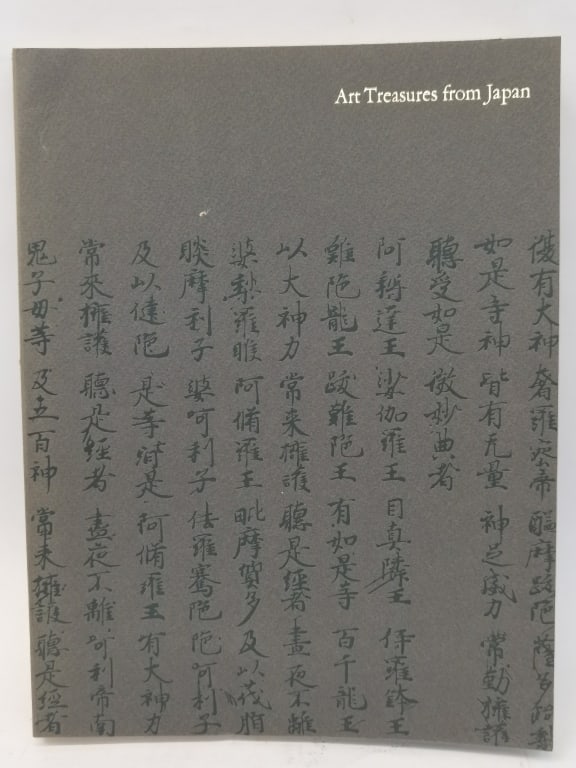 Art Treasures from Japan
復有大神 奢羅蜜帝 醯摩跋陁 薩多
如是等神 皆有无量 神足威力 常勤擁護
聽受如是 微妙典者
阿耨達王 娑伽羅王 目真隣王 伊羅鉢王
難陁龍王 跋難陁王 有如是等 百千龍王
以大神力 常来擁護 聽是經者 晝夜不離
婆梨羅睺 阿脩羅王 毗摩質多 及以茂脂
睒摩利子 婆呵利子 佉羅騫陁 陁呵利子
及以揵陁 是等皆是 阿脩羅王 有大神力
常來擁護 聽是經者 晝夜不離 呵利帝南
鬼子母等 及五百神 常来擁護 聽是經者